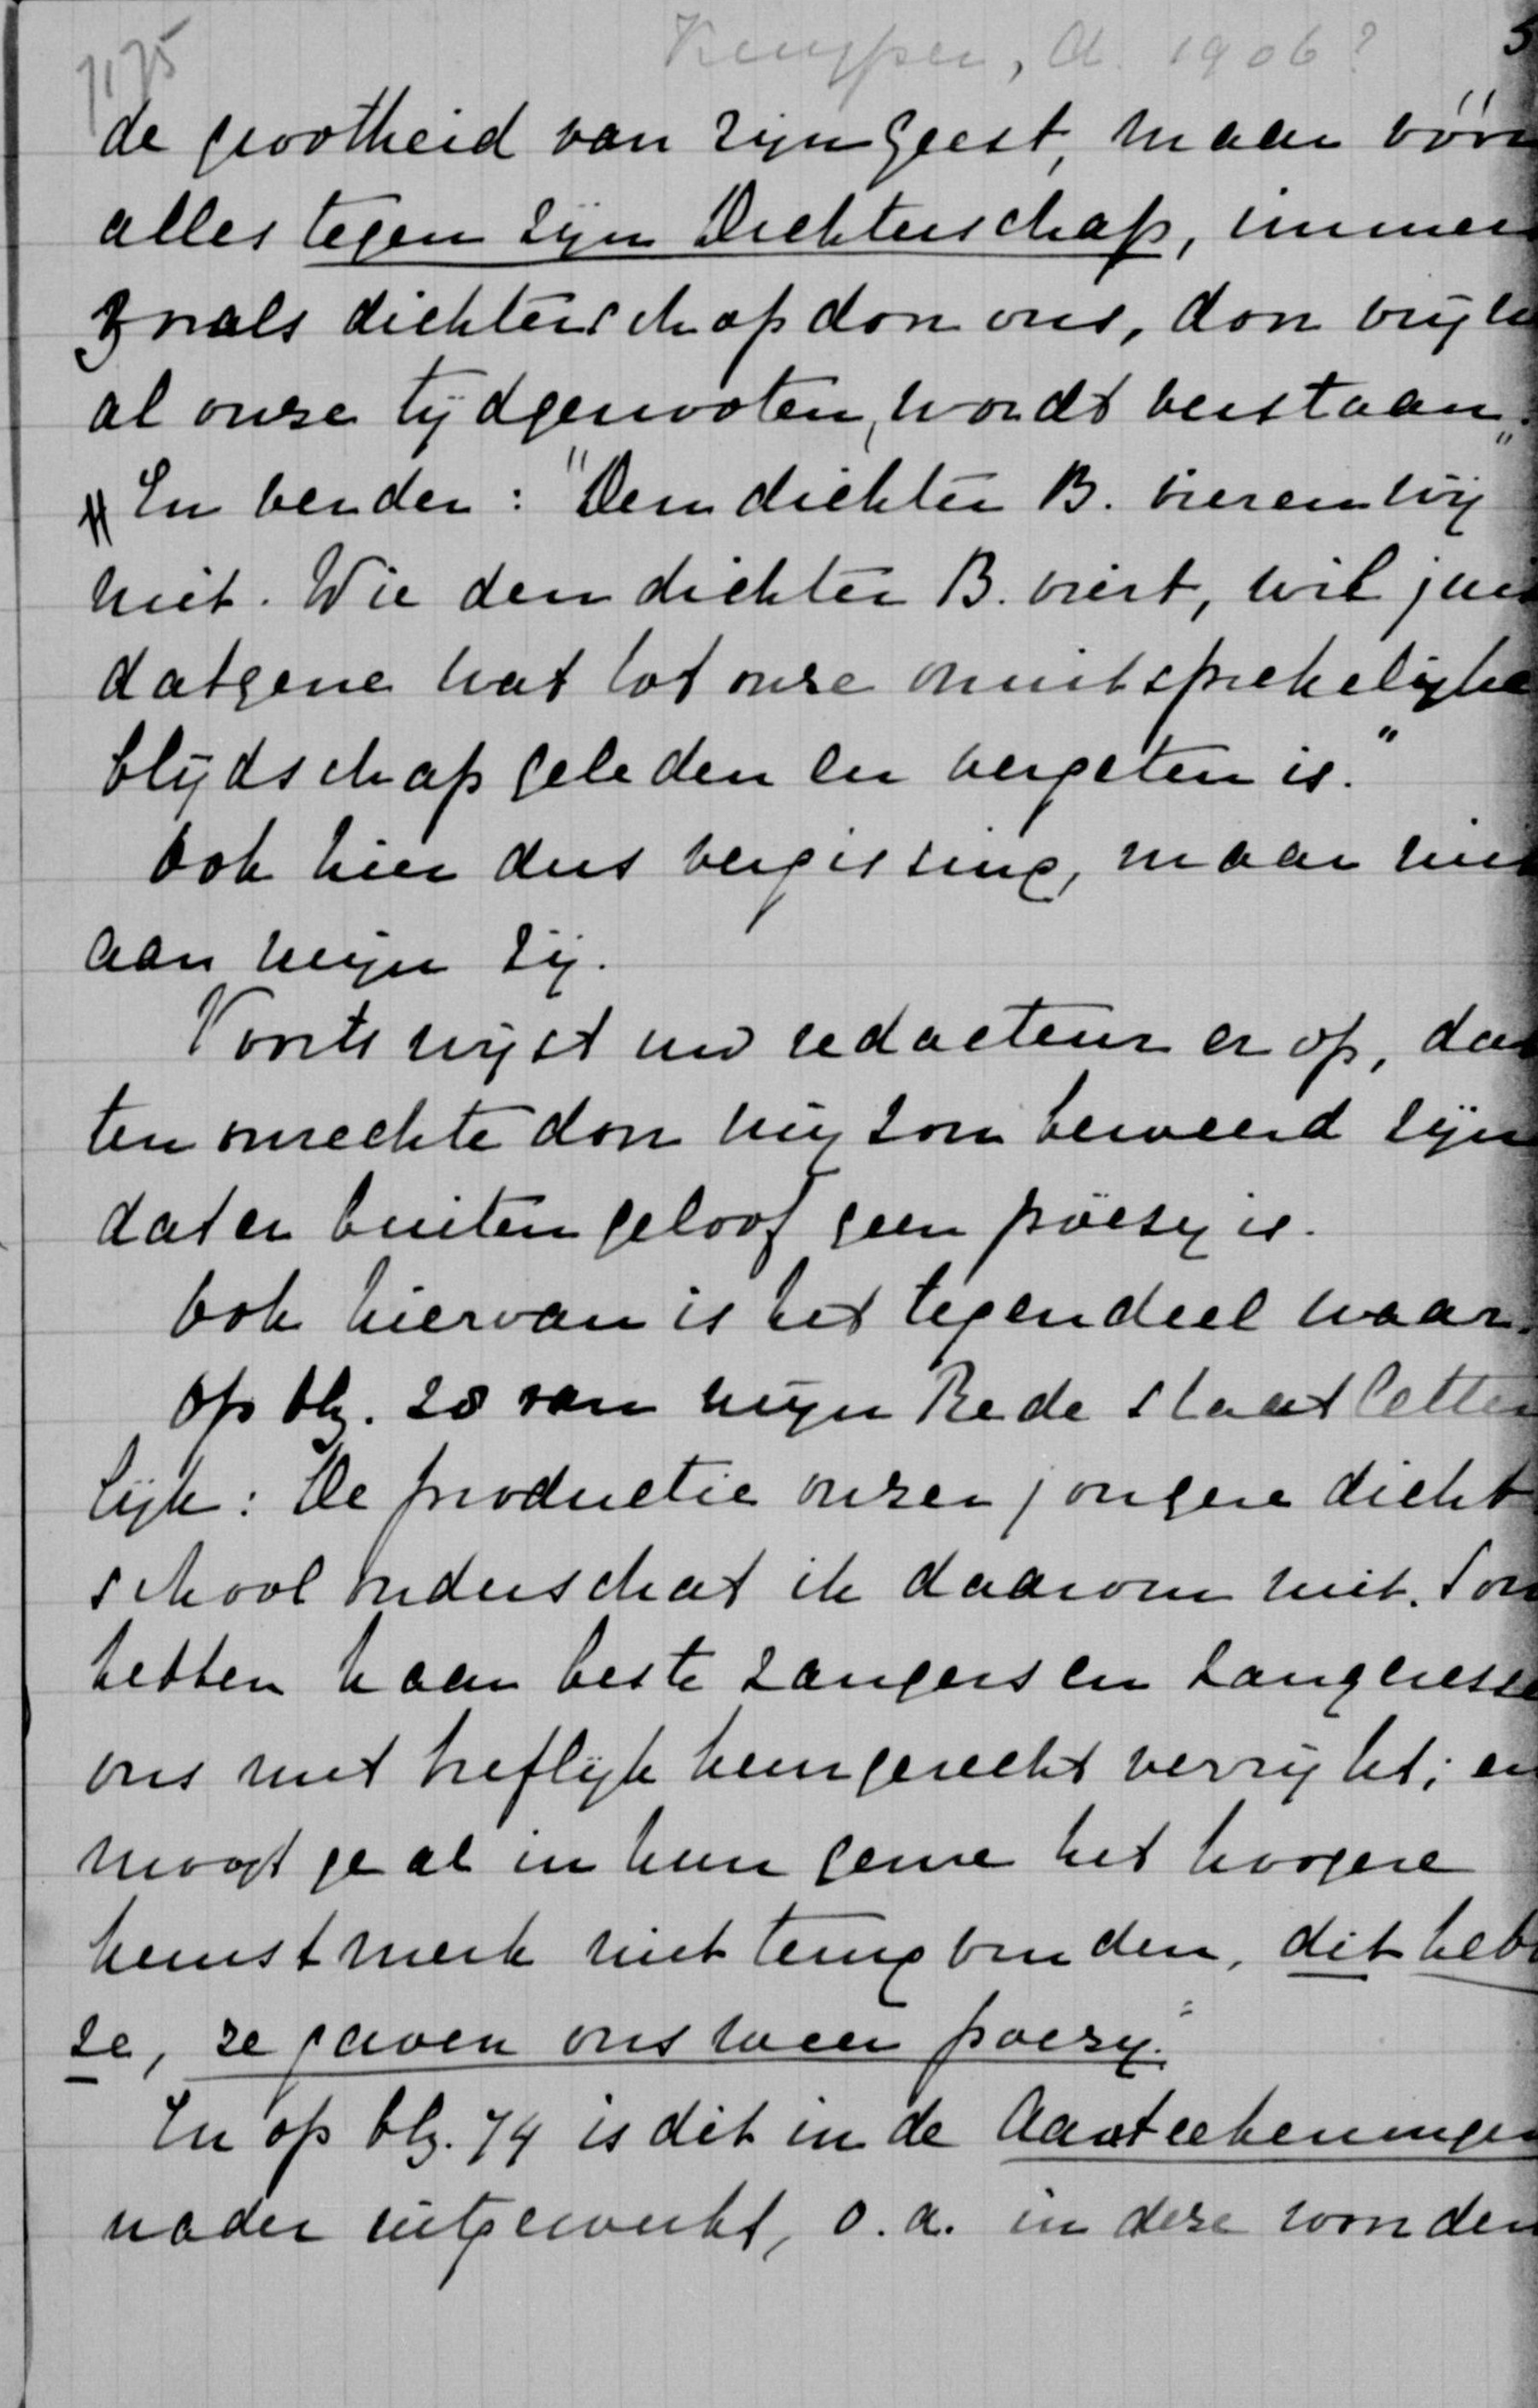 7175 Kuyper, A. 1906? 3
de grootheid van zijn Geest, maar vóór
alles tegen zijn Dichterschap, immers
zooals dichterschap door ons, door vrijwel
al onze tijdgenooten, wordt verstaan."
En verder: "Den dichter B. vieren wij
niet. Wie den dichter B. viert, wil juist
datgene wat tot onze onuitsprekelijke
blijdschap geleden en vergeten is."
Ook hier dus vergissing, maar niet
aan mijn zij.
Voorts wijst uw redacteur er op, dat
ten onrechte door mij zou beweerd zijn
dat er buiten geloof geen poëzij is.
Ook hiervan is het tegendeel waar.
Op blz. 28 van mijn Rede staat letter
lijk: De productie onzer jongere dicht
school onderschat ik daarom niet. Toch
hebben haar beste zangers en zangeressen
ons met heflijk kunstgerecht verrijkt; en
moogt ge al in hun genre het hoogere
kunstmerk niet terugvinden, dit hebben
ze, ze gaven ons weer poëzij."
En op blz. 74 is dit in de Aanteekeningen
nader uitgewerkt, o.a. in deze woorden